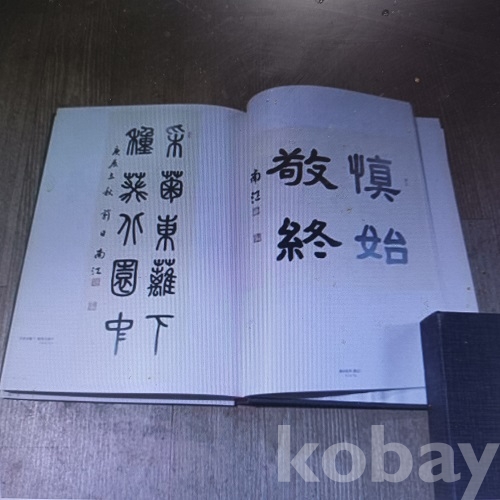 慎始
敬終
南江
采菊東籬下
種葵北園中
庚辰立秋前日 南江
kobay